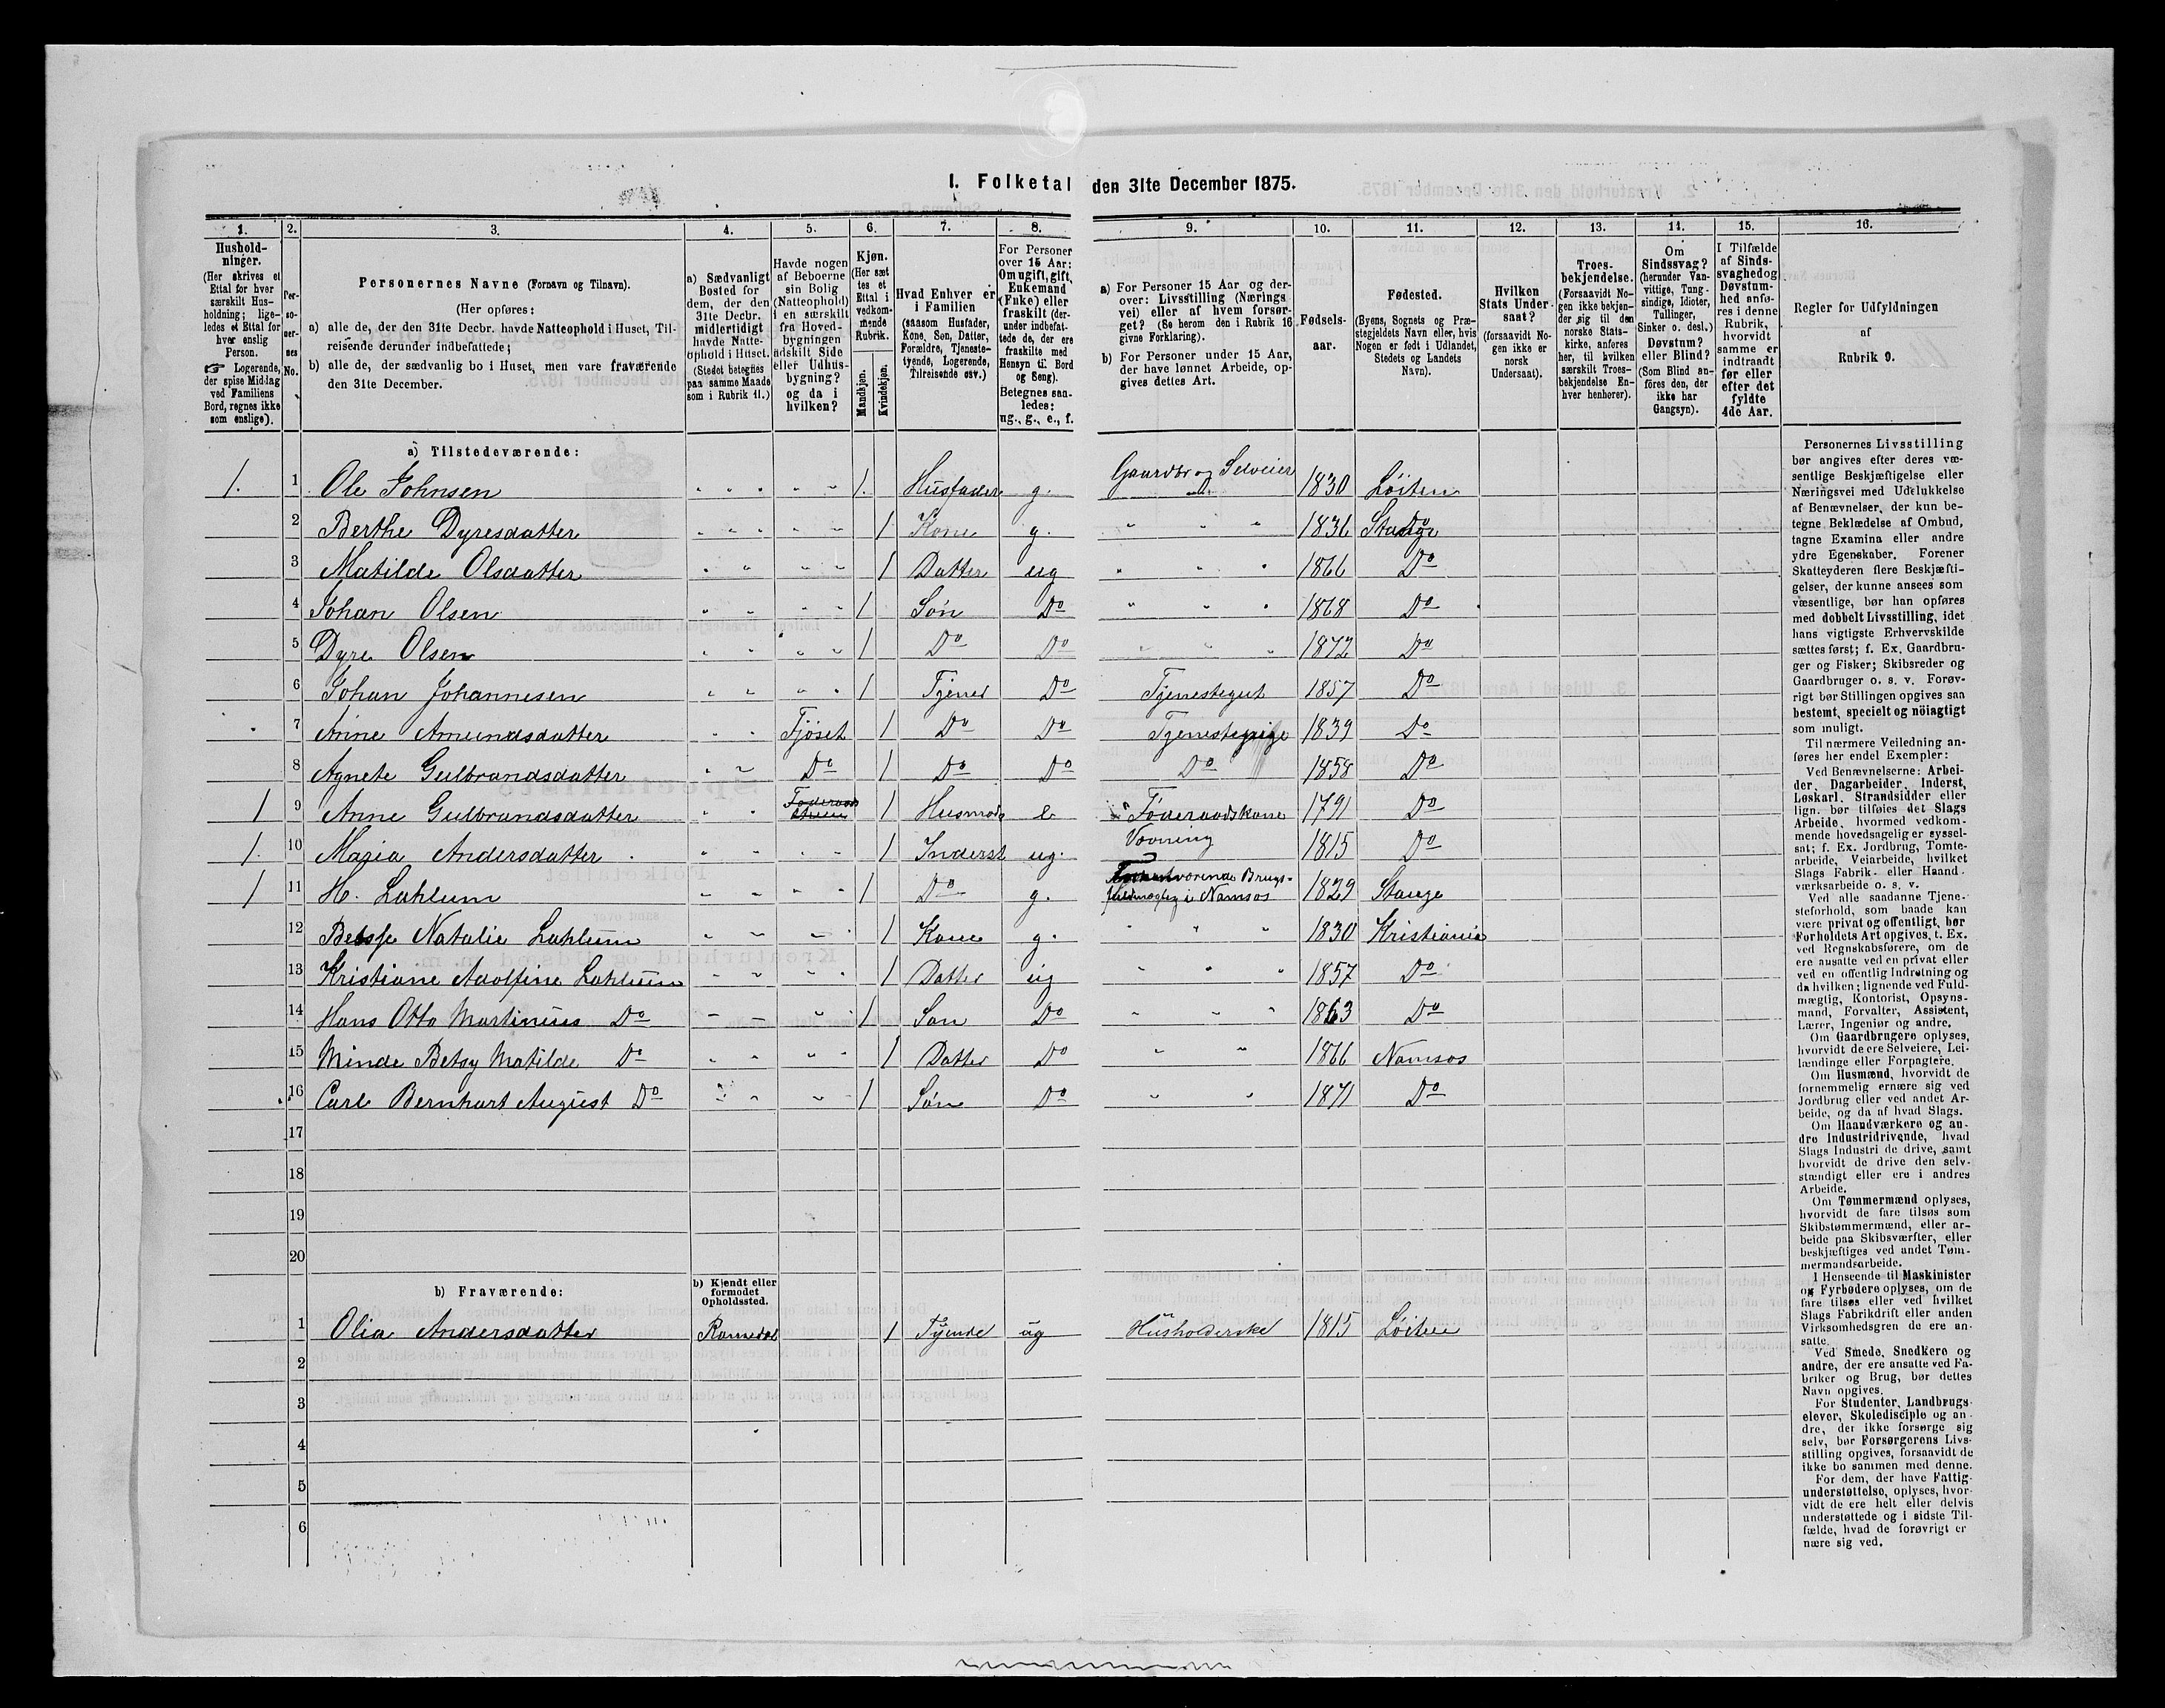 I. Folketal den 31te December 1875.
1. 2. 3. 4. 5. 6. 7. 8. 9. 10. 11. 12. 13. 14. 15. 16.
Hushold-
ninger.
(Her skrives et
Ettal for hver
særskilt Hus-
holdning; lige-
ledes et Ettal for
hver enslig
Person.
☞ Logerende,
der spise Middag
ved Familiens
Bord, regnes ikke
som enslige).
Per-
so-
ner-
nes
No.
Personernes Navne (Fornavn og Tilnavn).
(Her opføres:
a) alle de, der den 31te Decbr. havde Natteophold i Huset, Til-
reisende derunder indbefattede;
b) alle de, der sædvanlig bo i Huset, men vare fraværende
den 31te December.
a) Sædvanligt
Bosted for
dem, der den
31te Decbr.
midlertidigt
havde Natte-
ophold i Huset.
(Stedet betegnes
paa samme Maade
som i Rubrik 11.)
Havde nogen
af Beboerne
sin Bolig
(Natteophold)
i en særskilt
fra Hoved-
bygningen
adskilt Side
eller Udhus-
bygning?
og da i
hvilken?
Kjøn.
(Her sæt
tes et
Ettal i
vedkom-
mende
Rubrik.
Mandkjøn.
Kvindekjøn.
Hvad Enhver er
i Familien
(saasom Husfader,
Kone, Søn, Datter,
Forældre, Tjeneste-
tyende, Logerende,
Tilreisende osv.)
For Personer
over 15 Aar:
Om ugift, gift,
Enkemand
(Enke) eller
fraskilt (der-
under indbefat-
tede de, der ere
fraskilte med
Hensyn til Bord
og Seng).
Betegnes saa-
ledes:
ug., g., e., f.
a) For Personer 15 Aar og der-
over: Livsstilling (Nærings
vei) eller af hvem forsør-
get? (Se herom den i Rubrik 16
givne Forklaring).
b) For Personer under 15 Aar,
der have lønnet Arbeide, op-
gives dettes Art.
Fødsels-
aar.
Fødested.
(Byens, Sognets og Præ-
stegjeldets Navn eller, hvis
Nogen er født i Udlandet,
Stedets og Landets
Navn).
Hvilken
Stats Under-
saat?
(forsaavidt No-
gen ikke er
norsk
Undersaat).
Troes-
bekjendelse.
(Forsaavidt No-
gen ikke bekjen-
der sig til den
norske Stats-
kirke, anføres
her, til hvilken
særskilt Troes-
bekjendelse En-
hver henhører).
Om
Sindssvag?
(herunder Van-
vittige, Tung-
sindige, Idioter,
Tullinger,
Sinker o. desl.)
Døvstum?
eller Blind?
(Som Blind an-
føres den, der
ikke har
Gangsyn).
I Tilfælde
af Sinds-
svaghed og
Døvstum-
hed anfø-
res i denne
Rubrik,
hvorvidt
samme er
indtraadt
før eller
efter det
fyldte
4de Aar.
Regler for Udfyldningen
af
Rubrik 9.
a) Tilstedeværende:
1. 1 Ole Johnsen 1. Husfader g. Gaardbr og Selveier 1830 Løiten
2 Berthe Dyresdatter 1 Kone g. 1836 Stange
3 Matilde Olsdatter 1 Datter ug 1866 Do
4 Johan Olsen 1 Søn Do 1868 Do
5 Dyre Olsen 1 Do Do 1872 Do
6 Johan Johannesen 1 Tjener Do Tjenestegut 1857 Do
7 Anne Amundsdatter Fjöset 1 Do Do Tjenestepige 1839 Do
8 Agnete Gulbrandsdatter Do 1 Do Do Do 1858 Do
1 9 Anne Gulbrandsdatter 1 Husmode e Föderaadskone 1791 Do
1. 10 Maria Andersdatter 1 Inderst ug. 1815 Do
1 11 H. Lahlum 1 Do g. Brugs-
fuldmægtig i Namsos 1829 Stange
12 Natalie Lahlum 1 Kone g. 1830 Kristiania
13 Kristiane Adolfine Lahlum 1 Datter ug 1857 Do
14 Hans Otto Martinius Do 1 Søn Do 1863 Do
15 Minde Betsy Matilde Do 1 Datter Do 1866 Namsos
16 Carl Bernhart August Do 1 Søn Do 1871 Do
17
18
19
20
b) Fraværende:
b) Kjendt eller
formodet
Opholdssted.
1 Olia Andersdatter Romedal 1 Tyende ug Husholderske 1815 Löiten
2
3
4
5
6
Personernes Livsstilling
bør angives efter deres væ-
sentlige Beskjæftigelse eller
Næringsvei med Udelukkelse
af Benævnelser, der kun be-
tegne Beklædelse af Ombud,
tagne Examina eller andre
ydre Egenskaber. Forener
Skatteyderen flere Beskjæfti-
gelser, der kunne ansees som
væsentlige, bør han opføres
med dobbelt Livsstilling, idet
hans vigtigste Erhvervskilde
sættes først; f. Ex. Gaardbru-
ger og Fisker; Skibsreder og
Gaardbruger o. s. v. Forøv-
rigt bør Stillingen opgives saa
bestemt, specielt og nöiagtigt
som muligt.
Til nærmere Veiledning an-
føres her endel Exempler:
Ved Benævnelserne: Arbei-
der, Dagarbeider, Inderst,
Løskarl, Strandsidder eller
lign. bør tilføies det Slags
Arbeide, hvormed vedkom-
mende hovedsagelig er syssel-
sat; f. Ex. Jordbrug, Tomte-
arbeide, Veiarbeide, hvilket
Slags Fabrik- eller Haand-
værksarbeide o. s. v.
Ved alle saadanne Tjene-
steforhold, som baade kan
være privat og offentligt, bør
Forholdets Art opgives, t. Ex.
ved Regnskabsførere, om de
ere ansatte ved en privat eller
ved en offentlig Indretning og
da hvilken; lignende ved Fuld-
mægtig, Kontorist, Opsyns-
mand, Forvalter, Assistent,
Lærer, Ingeniør og andre.
Om Gaardbrugere oplyses,
hvorvidt de ere Selveiere, Lei-
lændinge eller Forpagtere.
Om Husmænd, hvorvidt de
fornemmelig ernære sig ved
Jordbrug eller ved andet Ar-
beide, og da af hvad Slags.
Om Haandværkere og an-
dre Industridrivende, hvad
Slags Industri de drive, samt
hvorvidt de drive den selv-
stændigt eller ere i andres
Arbeide.
Om Tømmermænd oplyses,
hvorvidt de fare tilsøs som
Skibstømmermænd, eller ar-
beide paa Skibsværfter, eller
beskjæftiges ved andet Tøm-
mermandsarbeide.
I Henseende til Maskinister
og Fyrbødere oplyses, om de
fare tilsøs eller ved hvilket
Slags Fabrikdrift eller anden
Virksomhedsgren de ere an-
satte.
Ved Smede, Snedkere og
andre, der ere ansatte ved Fa-
briker og Brug, bør dettes
Navn opgives.
For Studenter, Landbrugs-
elever, Skoledisciple og an-
dre, der ikke forsørge sig
selv, bør Forsørgerens Livs-
stilling opgives, forsaavidt de
ikke bo sammen med denne.
For dem, der have Fattig-
understøttelse, oplyses, hvor-
vidt de ere helt eller delvis
understøttede og i sidste Til-
fælde, hvad de forøvrigt er
nære sig ved.